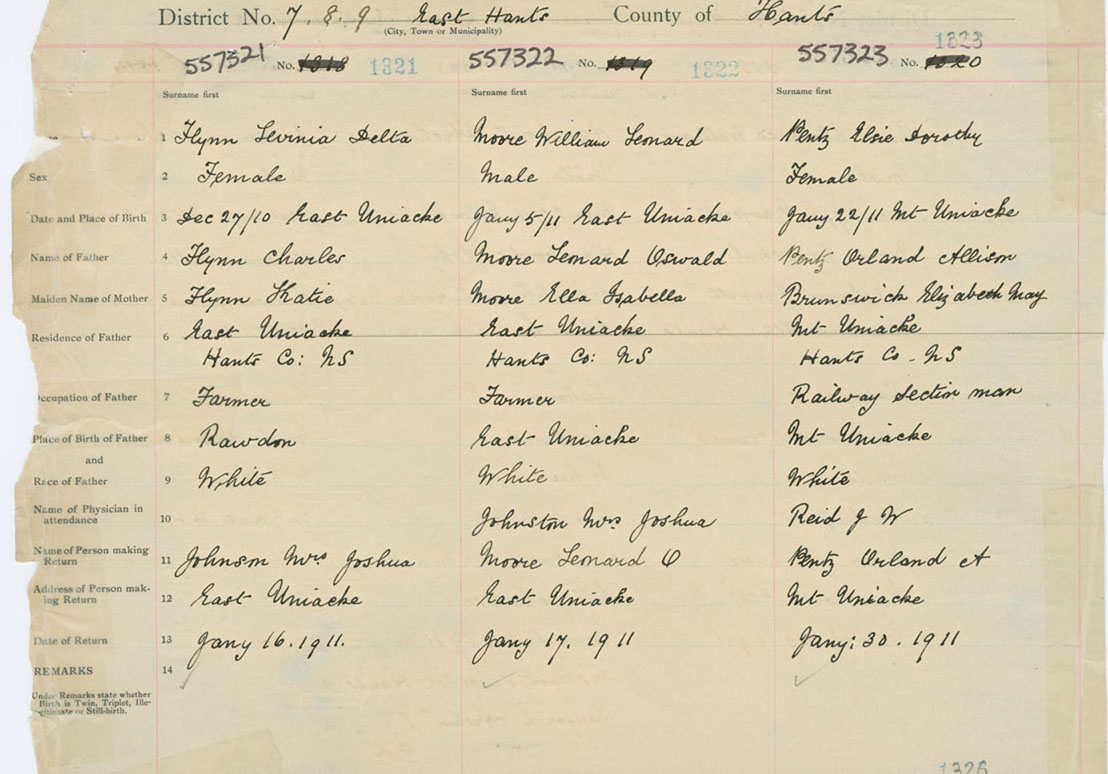 District No. 7. 8. 9 East Hants County of Hants
(City, Town or Municipality)
1323
557321 No. 1318 1321 557322 No. 1319 1322 557323 No. 1320
Surname first Surname first Surname first
1 Flynn Levinia Delta Moore William Leonard Pentz Elsie Dorothy
Sex 2 Female Male Female
Date and Place of Birth 3 Dec 27/10 East Uniacke Jany 5/11 East Uniacke Jany 22/11 Mt Uniacke
Name of Father 4 Flynn Charles Moore Leonard Oswald Pentz Orland Allison
Maiden Name of Mother 5 Flynn Katie Moore Ella Isabella Brunswick Elizabeth May
Residence of Father 6 East Uniacke East Uniacke Mt Uniacke
Hants Co: NS Hants Co: NS Hants Co - NS
Occupation of Father 7 Farmer Farmer Railway Section man
Place of Birth of Father 8 Rawdon East Uniacke Mt Uniacke
and
Race of Father 9 White White White
Name of Physician in
attendance 10 Johnston Mrs Joshua Reid J W
Name of Person making
Return 11 Johnson Mrs Joshua Moore Leonard O Pentz Orland A
Address of Person mak-
ing Return 12 East Uniacke East Uniacke Mt Uniacke
Date of Return 13 Jany 16. 1911. Jany 17. 1911 Jany: 30. 1911
REMARKS 14
Under Remarks state whether
Birth is Twin, Triplet, Ille-
gitimate or Still-birth.
1326